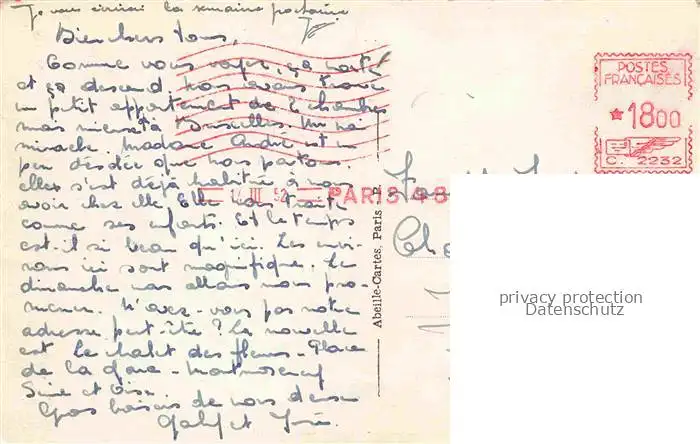 Je vous écrirai la semaine prochaine
Bien chers tous,
Comme vous voyez, ça monte
et ça descend. Nous avons trouvé
un petit appartement de 2 chambres
mais meublé à Bruxelles. Un
miracle. Madame André est un
peu désolée que nous partons.
elle s'est déjà habituée à nous
avoir chez elle. Elle nous traite
comme ses enfants. Et le temps
est-il si beau qu'ici. Les envi-
rons ici sont magnifique. Le
dimanche nous allons nous pro-
mener. N'avez-vous pas notre
adresse peut-être? La nouvelle
est le chalet des fleurs - Place
de la gare - Montmorency
Seine et Oise.
Gros baisers de nous deux
et
POSTES
FRANÇAISES
*1800
C. 2232
III 52
PARIS 48
Abeille-Cartes, Paris
privacy protection
Datenschutz